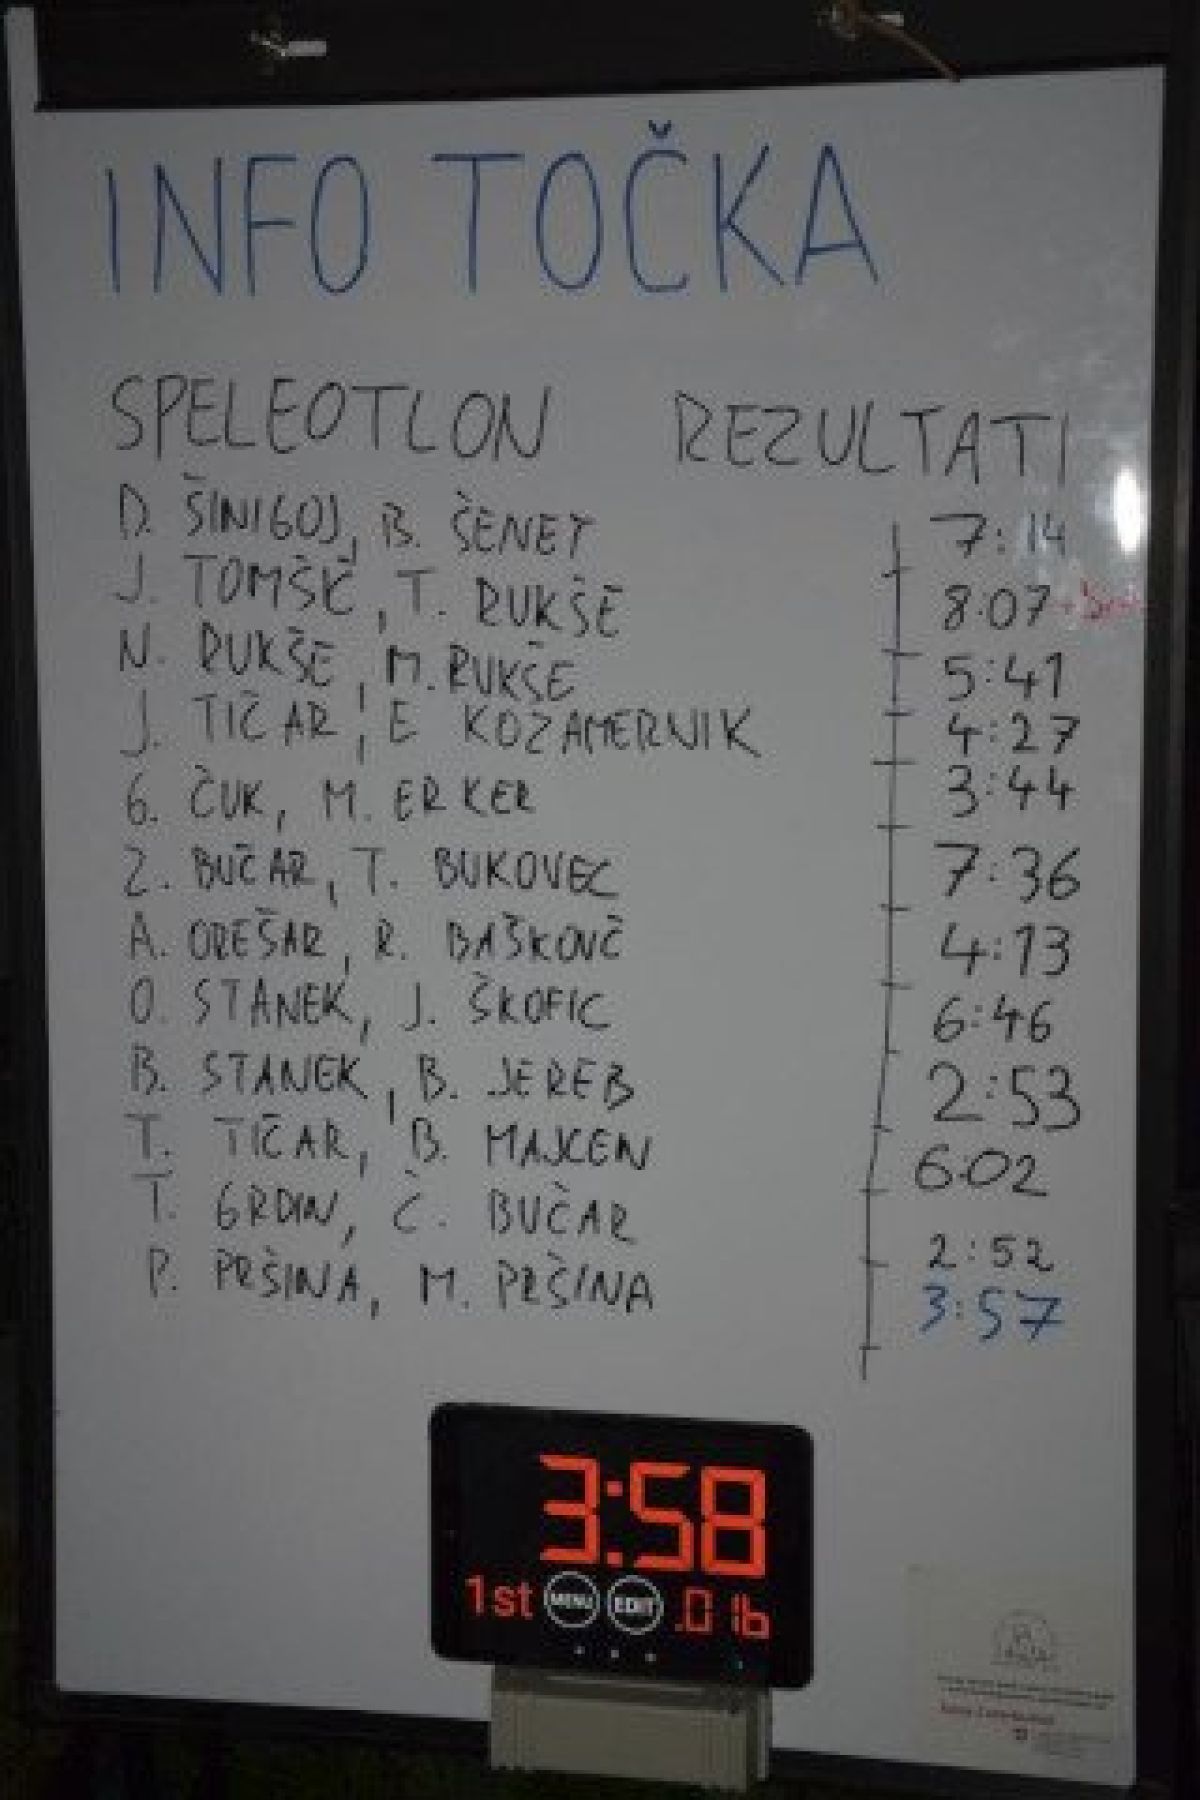 INFO TOČKA
SPELEOTLON REZULTATI
D. ŠINIGOJ, B. ŠENET 7:14
J. TOMŠIČ, T. RUKŠE 8:07
N. RUKŠE, M. RUKŠE 5:41
J. TIČAR, E KOZAMERNIK 4:27
G. ČUK, M. ERKER 3:44
Z. BUČAR, T. BUKOVEC 7:36
A. OREŠAR, R. BAŠKOVČ 4:13
O. STANEK, J. ŠKOFIC 6:46
B. STANEK, B. JEREB 2:53
T. TIČAR, B. MAJCEN 6:02
T. GRDIN, Č. BUČAR 2:52
P. PRŠINA, M. PRŠINA 3:57
3:58
1st MENU EDIT